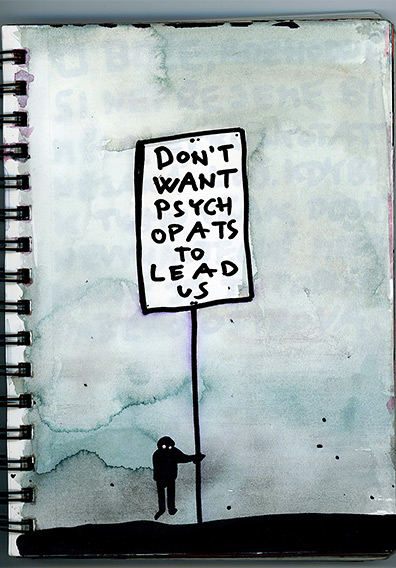 DON'T
WANT
PSYCH
OPATS
TO
LEAD
US